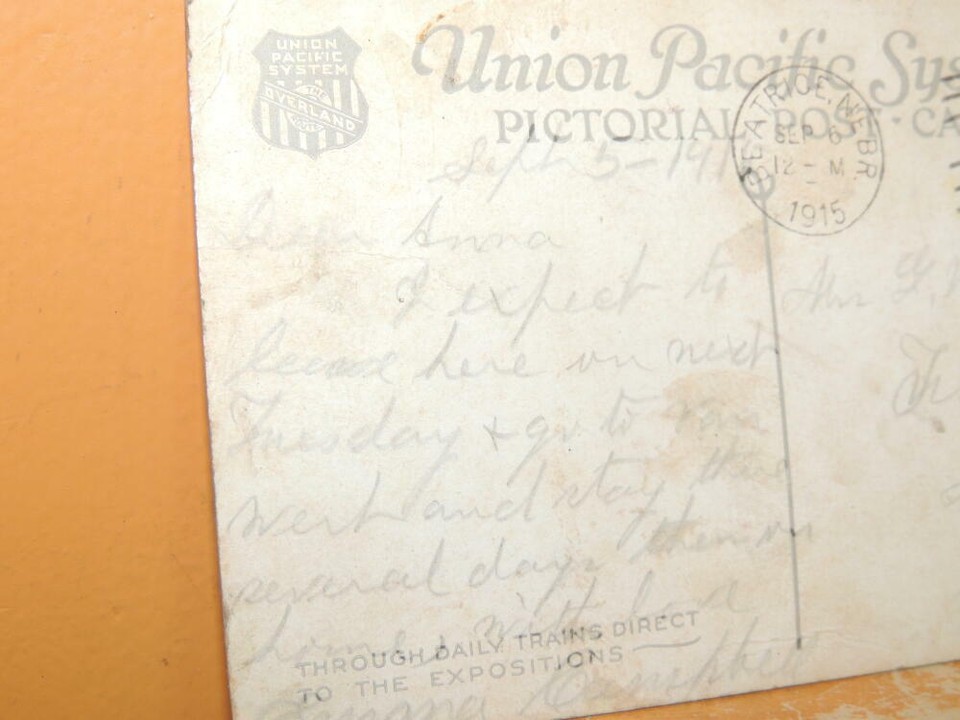 UNION
PACIFIC
SYSTEM
THE
OVERLAND
Union Pacific Sys
PICTORIAL POST · CA
BEATRICE, NEBR.
SEP 6
12 - M
1915
Sept 5 - 191
Dear Anna
I expect to
leave here on next
Tuesday + go to
west and stay
several days then on
home with
THROUGH DAILY TRAINS DIRECT
TO THE EXPOSITIONS